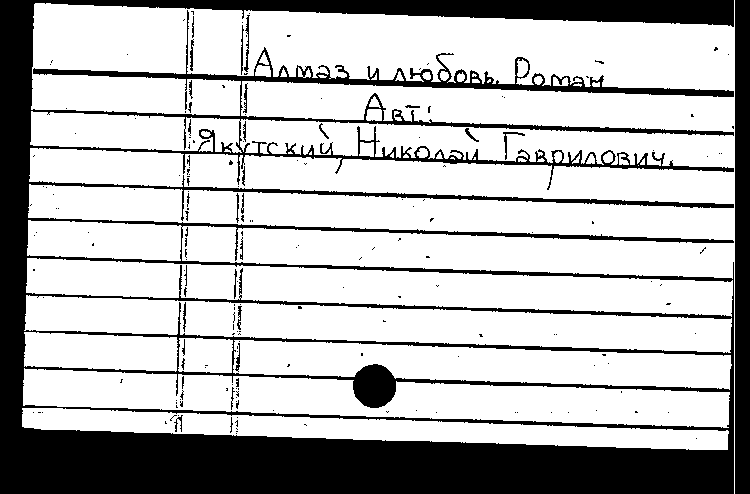 Алмаз и любовь. Роман
Авт.:
Якутский, Николай Гаврилович.